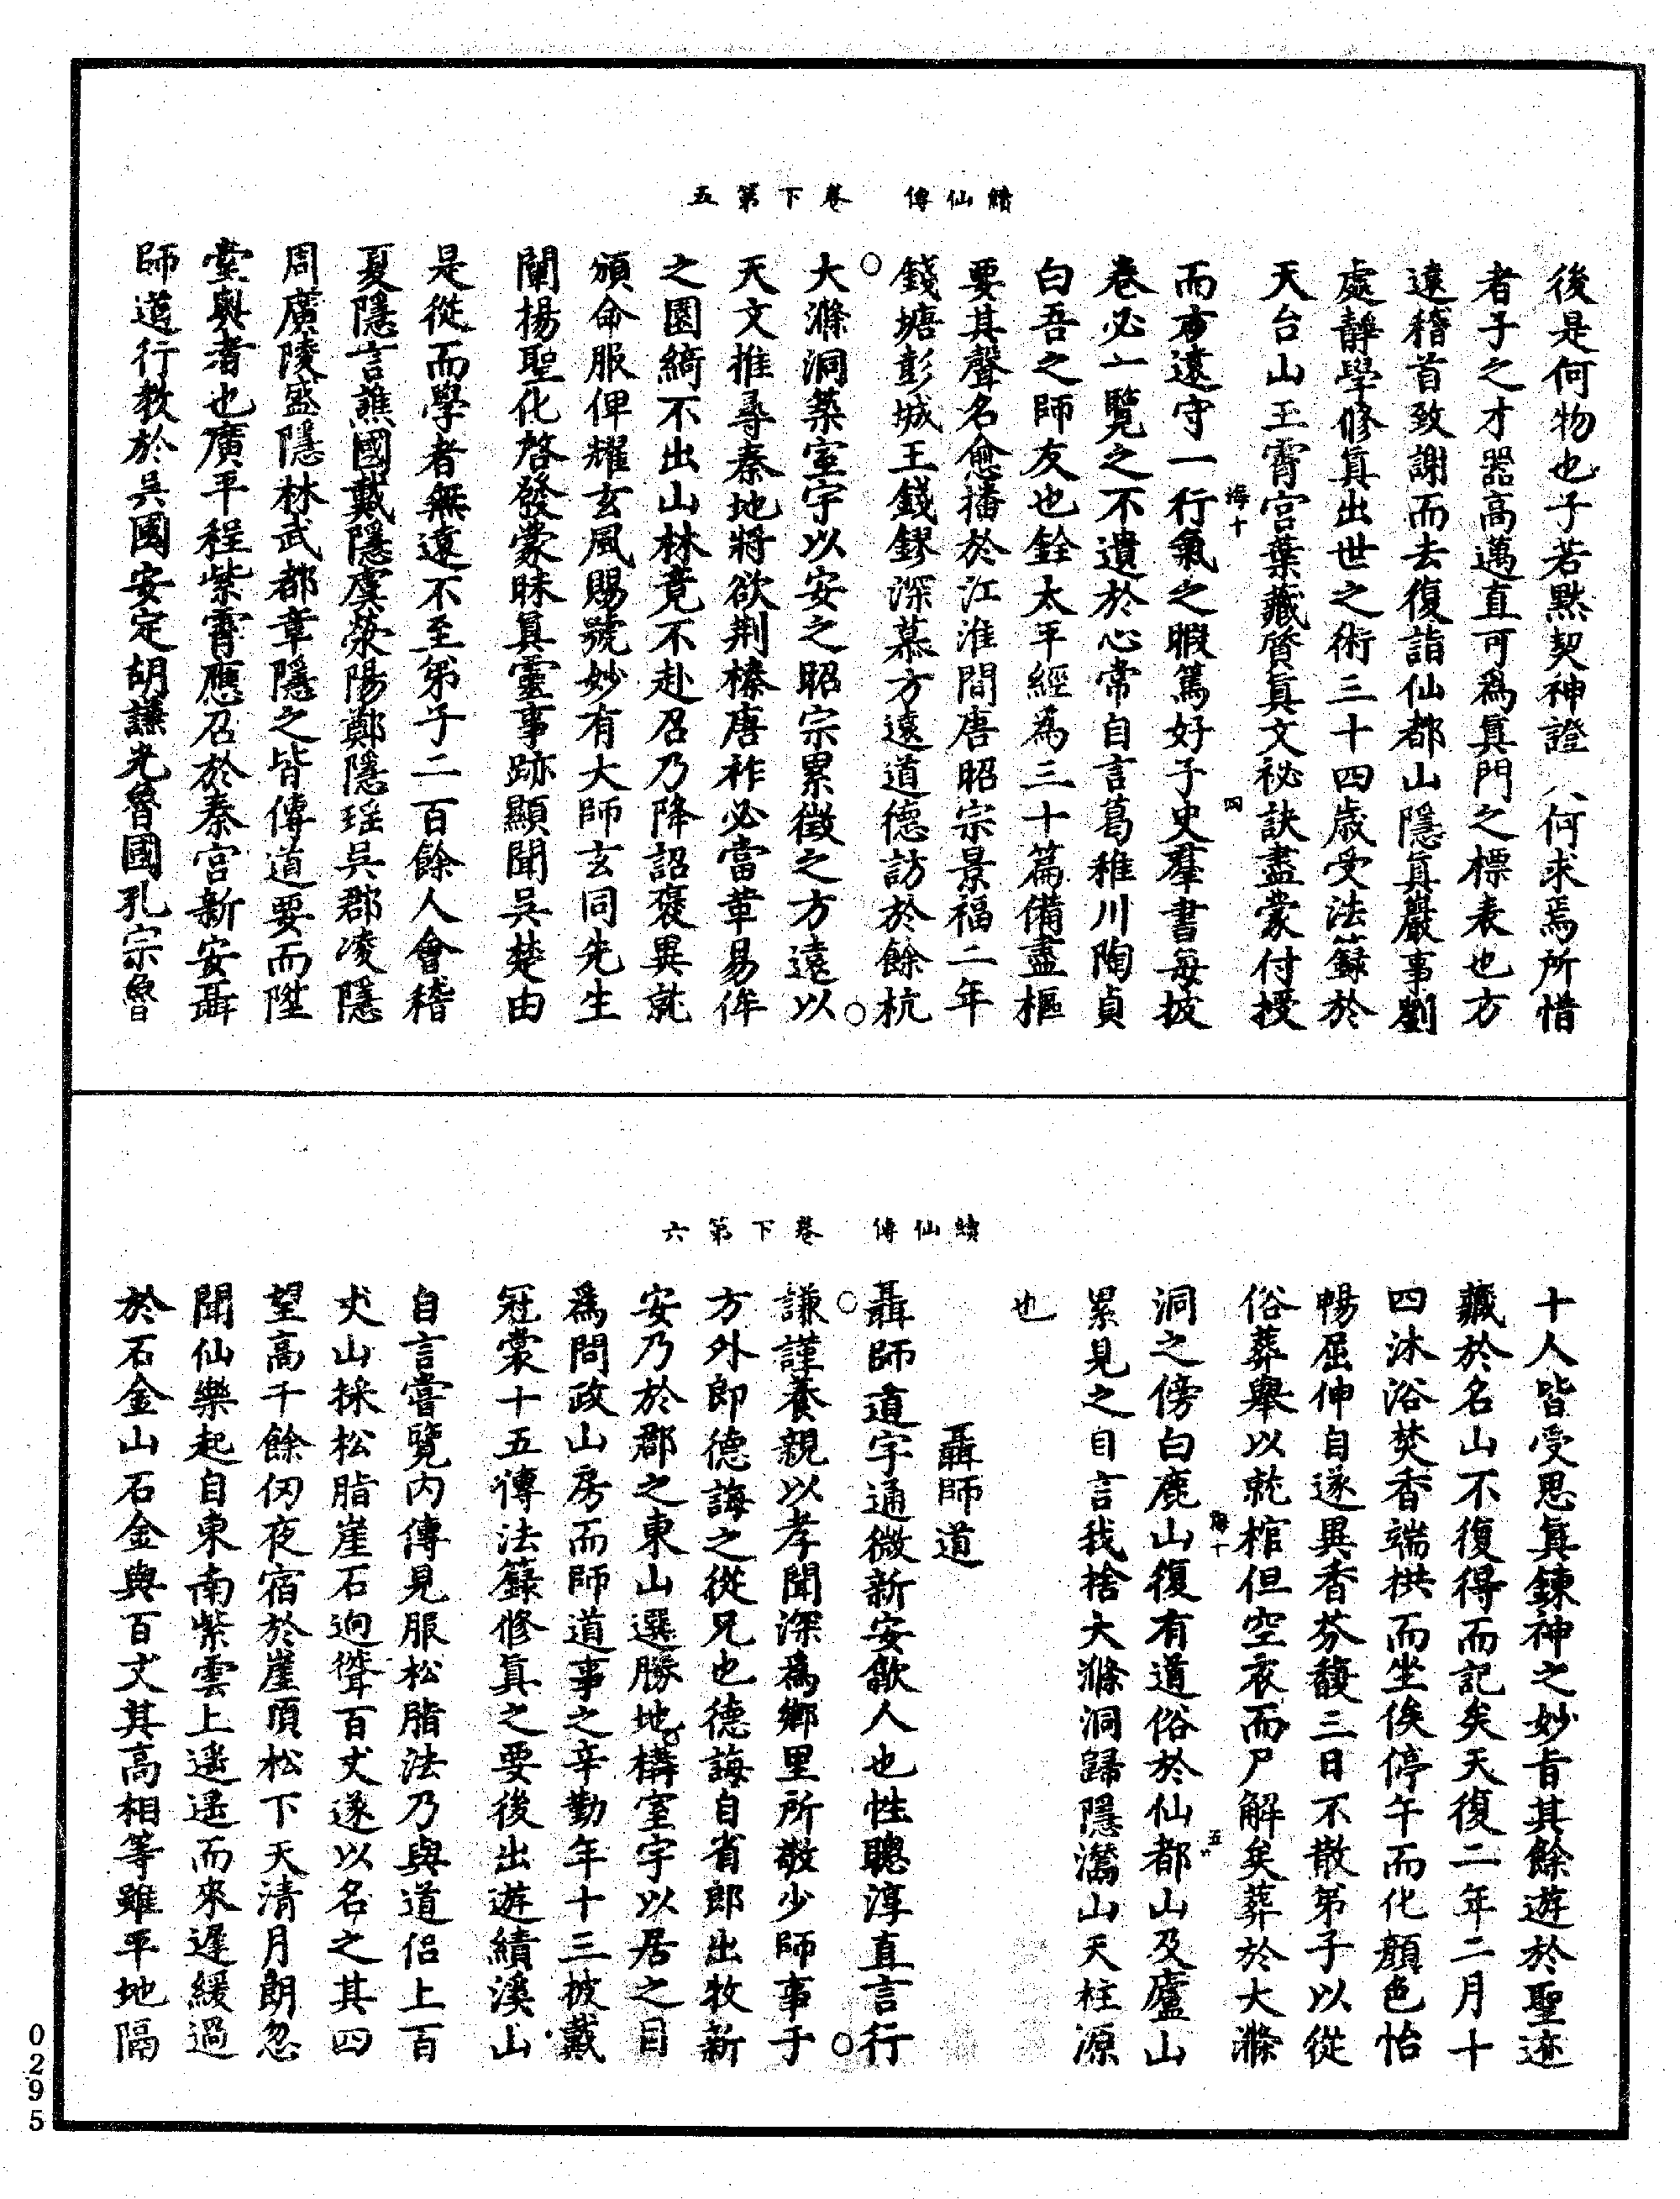 續仙傳　卷下第五
後是何物也子若默契神證人何求焉所惜
者子之才器高邁直可爲眞門之標表也方
遠稽首致謝而去復詣仙都山隱眞巖事劉
處靜學修眞出世之術三十四歲受法籙於
天台山玉霄宮葉藏質眞文秘訣盡蒙付授
海十　四
而方遠守一行氣之暇篤好子史羣書每披
卷必一覽之不遺於心常自言葛稚川陶貞
白吾之師友也銓太平經爲三十篇備盡樞
要其聲名愈播於江淮間唐昭宗景福二年
錢塘彭城王錢鏐深慕方遠道德訪於餘杭
大滌洞築室宇以安之昭宗累徵之方遠以
天文推尋秦地將欲荆榛唐祚必當革易侔
之園綺不出山林竟不赴召乃降詔褒異就
頒命服俾耀玄風賜號妙有大師玄同先生
闡揚聖化啓發蒙昧眞靈事跡顯聞吳楚由
是從而學者無遠不至弟子二百餘人會稽
夏隱言譙國戴隱虞滎陽鄭隱瑶吳郡凌隱
周廣陵盛隱林武都章隱之皆傳道要而陞
堂奧者也廣平程紫霄應召於秦宮新安聶
師道行教於吳國安定胡謙光魯國孔宗魯
續仙傳　卷下第六
十人皆受思眞鍊神之妙旨其餘遊於聖迹
藏於名山不復得而記矣天復二年二月十
四沐浴焚香端拱而坐俟停午而化顏色怡
暢屈伸自遂異香芬馥三日不散弟子以從
俗葬舉以就棺但空衣而尸解矣葬於大滌
海十　五
洞之傍白鹿山復有道俗於仙都山及廬山
累見之自言我捨大滌洞歸隱灊山天柱源
也
聶師道
聶師道字通微新安歙人也性聰淳直言行
謙謹養親以孝聞深爲鄉里所敬少師事于
方外即德誨之從兄也德誨自省郎出牧新
安乃於郡之東山選勝地構室宇以居之目
爲問政山房而師道事之辛勤年十三披戴
冠裳十五傳法籙修眞之要後出遊績溪山
自言嘗覽内傳見服松脂法乃與道侶上百
丈山採松脂崖石迥聳百丈遂以名之其四
望高千餘仞夜宿於崖頂松下天清月朗忽
聞仙樂起自東南紫雲上遥遥而來遲緩過
於石金山石金與百丈其高相等雖平地隔
0295